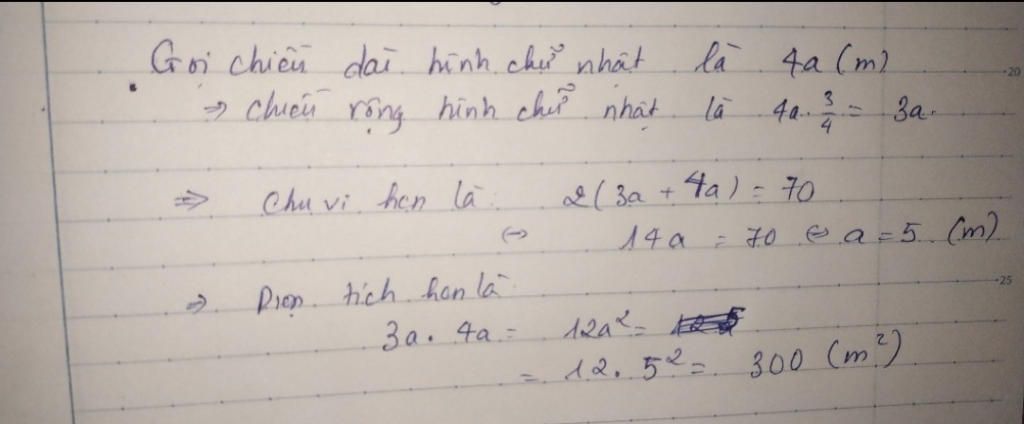 Gọi chiều dài hình chữ nhật là 4a (m)
20
⇒ chiều rộng hình chữ nhật là 4a. 3/4 = 3a.
⇒ Chu vi hcn là: 2(3a + 4a) = 70
⇔ 14a = 70 ⇔ a = 5 (m)
25
⇒ Diện tích hcn là
3a. 4a = 12a² =
= 12. 5² = 300 (m²)